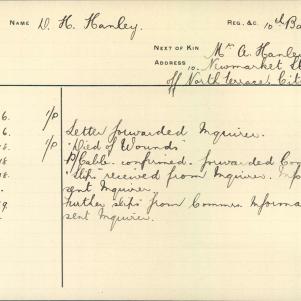 NAME D. H. Hanley. REG. &C. 10th Ba
NEXT OF KIN Mr A. Hanley
ADDRESS 10. Newmarket St
off North Terrace, Cit
6. I/P
6. Letter forwarded Inquirer.
8. I/P "Died of Wounds"
18 Cable. confirmed. forwarded Co
18. "slip" received from Inquirer.
sent Inquirer.
19. Further slips from Common Informa
sent Inquirer.